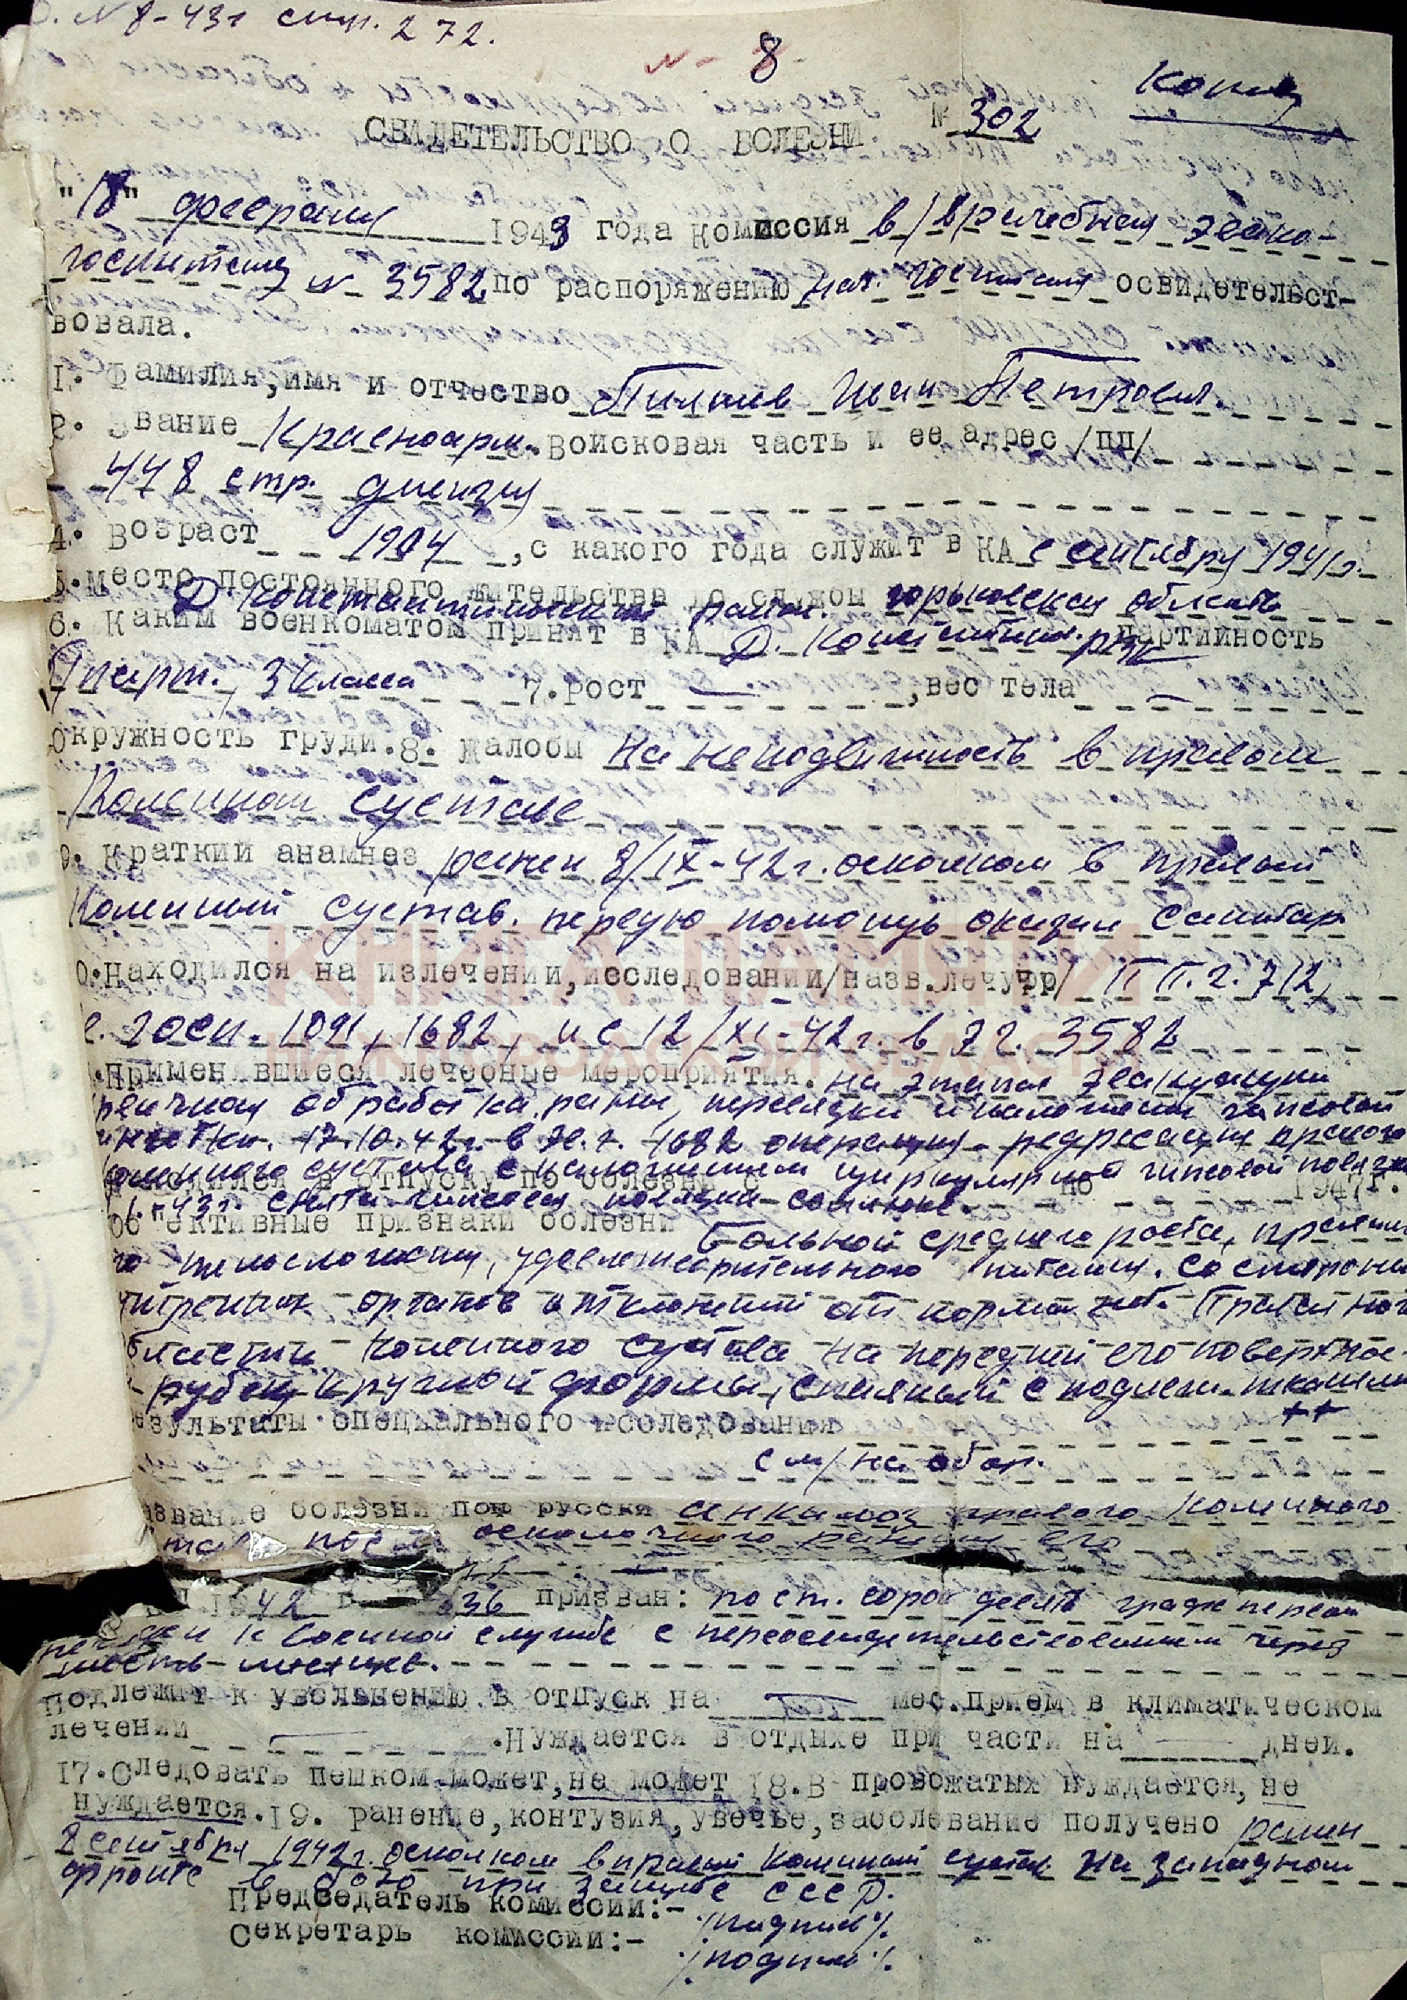 № 8-43г стр. 272.
№ - 8
Копия
СВИДЕТЕЛЬСТВО О БОЛЕЗНИ № 302
"18" февраля 1943 года комиссия в/врачебная эвако-
госпиталя № 3582 по распоряжению нач. госпиталя освидетельст-
вовала.
1. Фамилия, имя и отчество Иван Петрович
2. Звание Красноарм. Войсковая часть и ее адрес /пп/
448 стр. дивизия
4. Возраст 1904, с какого года служит в КА с сентября 1941 г.
5. Место постоянного жительства до службы Горьковская область
Д Константиновский район.
6. Каким военкоматом принят в КА Д. Константин. РВК партийность
б/парт., 3 класса 7. рост — , вес тела —
Окружность груди. 8. Жалобы на неподвижность в правом
Коленном суставе
9. Краткий анамнез ранен 8/IX-42г. осколком в правый
Коленный сустав. первую помощь оказал санитар
КНИГА ПАМЯТИ
НИЖЕГОРОДСКОЙ ОБЛАСТИ
10. Находился на излечении, исследовании /назв. леч учр/ П П. г. 712,
госп. 1091, 1682, и с 12/XI-42г. в эг. 3582
Применявшиеся лечебные мероприятия. на этапах эвакуации
обработка раны, перевязки и наложении гипсовой
17.10.42г. в эг. 1682 операция - редрессация правого
коленного сустава с наложением циркулярной гипсовой повязки
в отпуску по болезни с по 1947г.
43г. снята гипсовая повязка
Об"ективные признаки болезни Больной среднего роста, правильно-
го телосложения, удовлетворительного питания. Со стороны
внутренних органов отклонений от нормы нет. Правая нога
области коленного сустава на передней его поверхнос-
рубец круглой формы, спаянный с подлеж. тканями
++
результаты специального исследования
см/на обор.
название болезни по русски анкилоз правого коленного
после осколочного ранения его
1942 г 336 призван: по ст. сорок десять графе первой
к военной службе с переосвидетельствованием через
шесть месяцев.
Подлежит к увольнению в отпуск на — мес. прием в климатическом
лечении — . Нуждается в отдыхе при части на — дней.
17. Следовать пешком может, не может 18. В провожатых нуждается, не
нуждается. 19. ранение, контузия, увечье, заболевание получено ранен
8 сентября 1942г. осколком в правый коленный сустав на западном
фронте в бою при защите СССР.
Председатель комиссии:- /подпись/.
Секретарь комиссии:- /подпись/.